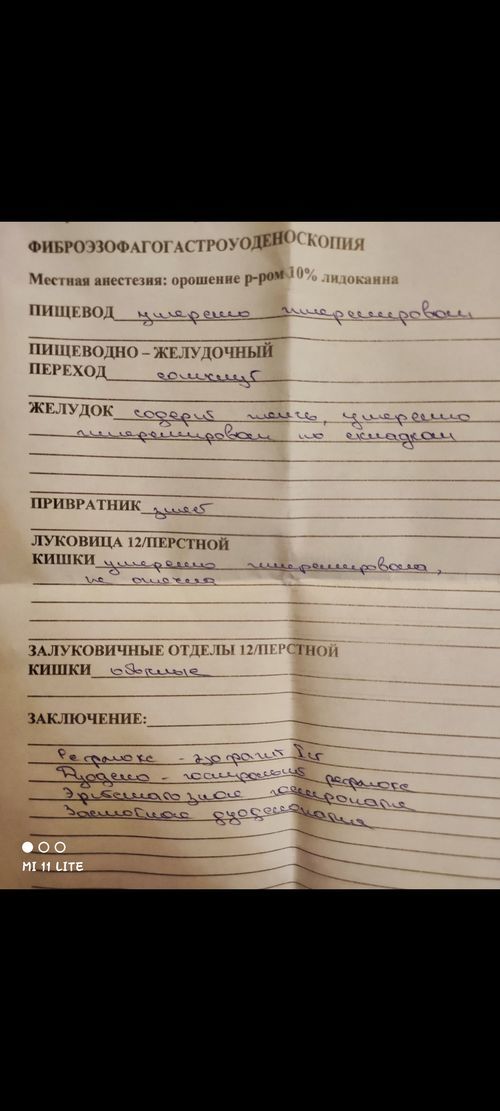 ФИБРОЭЗОФАГОГАСТРОУОДЕНОСКОПИЯ
Местная анестезия: орошение р-ром 10% лидокаина
ПИЩЕВОД умеренно гиперемирован
ПИЩЕВОДНО – ЖЕЛУДОЧНЫЙ
ПЕРЕХОД сомкнут
ЖЕЛУДОК содерж желчь, умеренно
гиперемирован по складкам
ПРИВРАТНИК зияет
ЛУКОВИЦА 12/ПЕРСТНОЙ
КИШКИ умеренно гиперемирована,
не отечна
ЗАЛУКОВИЧНЫЕ ОТДЕЛЫ 12/ПЕРСТНОЙ
КИШКИ обычные
ЗАКЛЮЧЕНИЕ:
Рефлюкс - эзофагит I ст
Дуодено - гастральный рефлюкс
Эритематозная гастропатия
Застойная дуоденопатия
MI 11 LITE